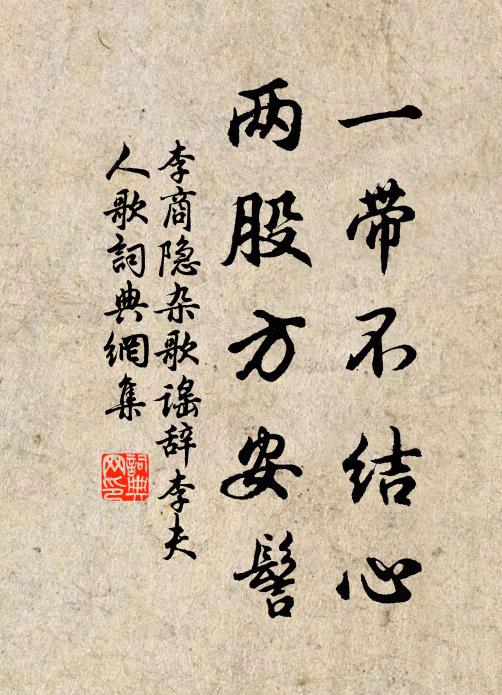 一带不结心
两股方安髻
李商隐杂歌谣辞李夫
人歌詞典網集
詞典
网印